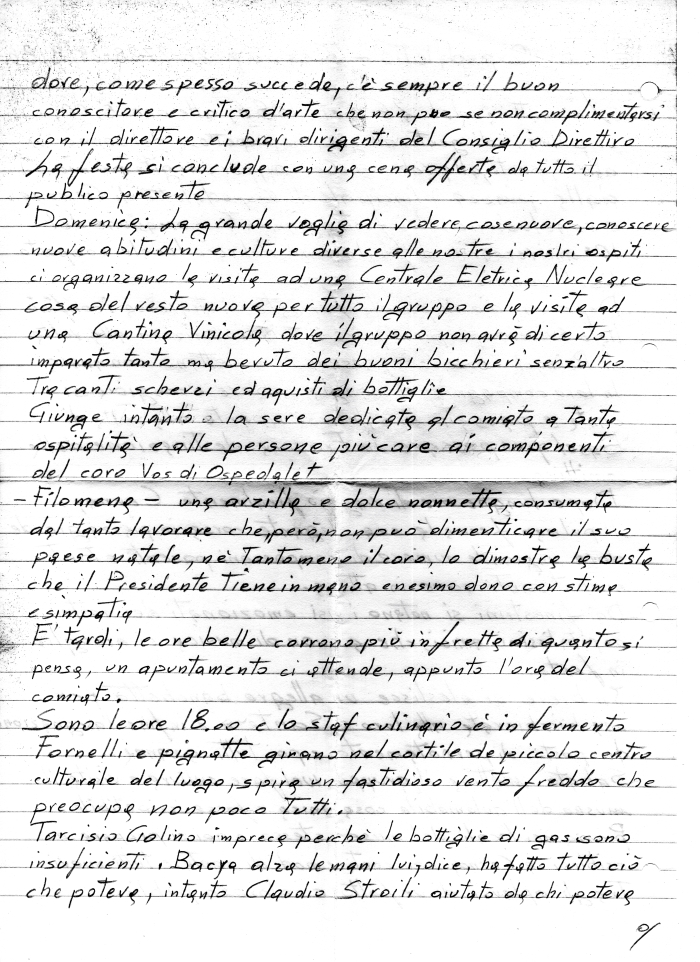 dove, come spesso succede, c'è sempre il buon
conoscitore e critico d'arte che non puo se non complimentarsi
con il direttore e i bravi dirigenti del Consiglio Direttivo
La festa si conclude con una cena offerta da tutto il
publico presente
Domenica: La grande voglia di vedere, cose nuove, conoscere
nuove abitudini e culture diverse alle nostre i nostri ospiti
ci organizzano la visita ad una Centrale Eletrica Nucleare
cosa del resto nuova per tutto il gruppo e la visita ad
una Cantina Vinicola dove il gruppo non avrà di certo
imparato tanto ma bevuto dei buoni bicchieri senz'altro
Tra canti scherzi ed aquisti di bottiglie
Giunge intanto la sera dedicata al comiato a Tanta
ospitalità e alle persone più care ai componenti
del coro Vos di Ospedalet
- Filomena - una arzilla e dolce nonnetta, consumata
dal tanto lavorare che, però, non può dimenticare il suo
paese natale, nè Tantomeno il coro, lo dimostra la busta
che il Presidente Tiene in mano enesimo dono con stima
e simpatia
E' tardi, le ore belle corrono più in fretta di quanto si
pensa, un apuntamento ci attende, appunto l'ora del
comiato.
Sono le ore 18.00 e lo staf culinario è in fermento
Fornelli e pignatte girano nel cortile de piccolo centro
culturale del luogo, spira un fastidioso vento freddo che
preocupa non poco Tutti.
Tarcisio Golino impreca perchè le bottiglie di gas sono
insuficienti. Bacya alza le mani lui, dice, ha fatto tutto ciò
che poteva, intanto Claudio Stroili aiutato da chi poteva